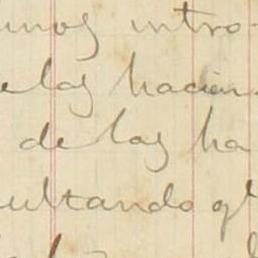 unos intro-
e las hacien
de las ha
ultando q